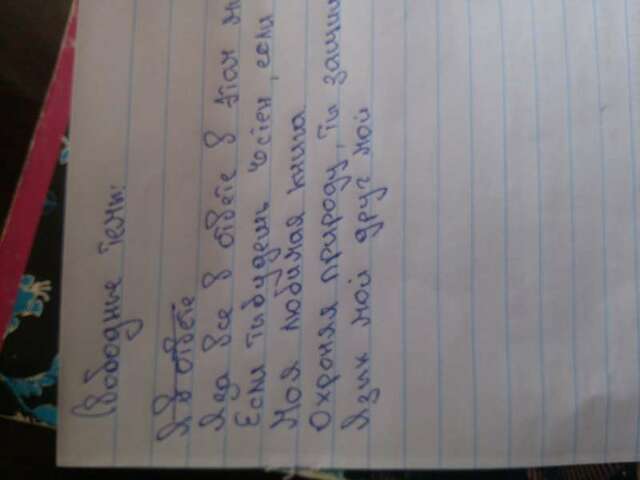 Свободные темы:
Я в ответе
Я за все в ответе в этом
Если ты будешь честен, если
Моя любимая книга
Охроняя природу, ты
Язик мой друг мой